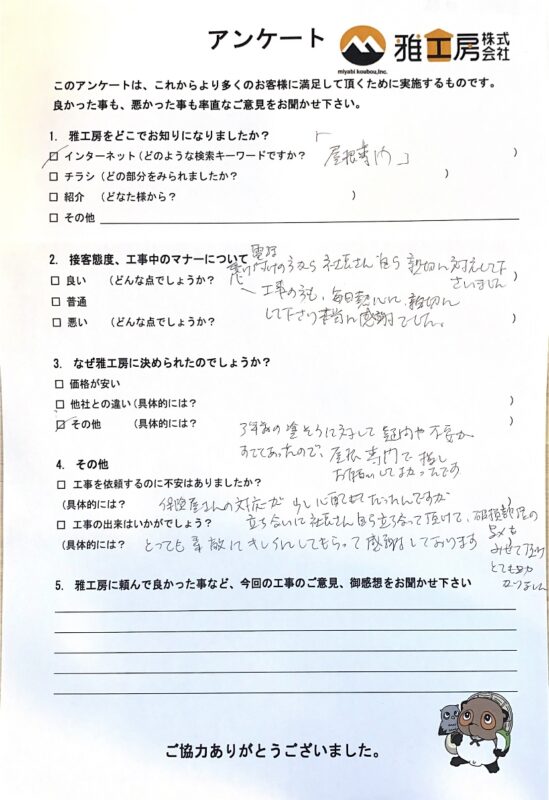 アンケート
雅工房株式会社
miyabi koubou,Inc.
このアンケートは、これからより多くのお客様に満足して頂くために実施するものです。
良かった事も、悪かった事も率直なご意見をお聞かせ下さい。
1. 雅工房をどこでお知りになりましたか?
□ インターネット(どのような検索キーワードですか? 「屋根専門」 )
□ チラシ (どの部分をみられましたか? )
□ 紹介 (どなた様から? )
□ その他
2. 接客態度、工事中のマナーについて 電話
受け付けの方から 社長さん自ら 親切に対応して下
□ 良い (どんな点でしょうか? さいました )
□ 普通 工事の方も、毎日熱心に、親切に
□ 悪い (どんな点でしょうか? して下さり本当に感謝でした。 )
3. なぜ雅工房に決められたのでしょうか?
□ 価格が安い
□ 他社との違い(具体的には? )
□ その他 (具体的には? 3年前の塗そうに対して疑問や不安が
すてであったので、屋根専門で探し
お願いしてよかったです
4. その他
□ 工事を依頼するのに不安はありましたか?
(具体的には? 保険屋さんの対応が少し心配だったんですが )
□ 工事の出来はいかがでしょう? 立ち合いに社長さん自ら立ち合って頂けて、破損部屋の
(具体的には? とっても素敵に してもらって感謝しております )
写メも
みせて頂け
とても
なりました
5. 雅工房に頼んで良かった事など、今回の工事のご意見、御感想をお聞かせ下さい
ご協力ありがとうございました。